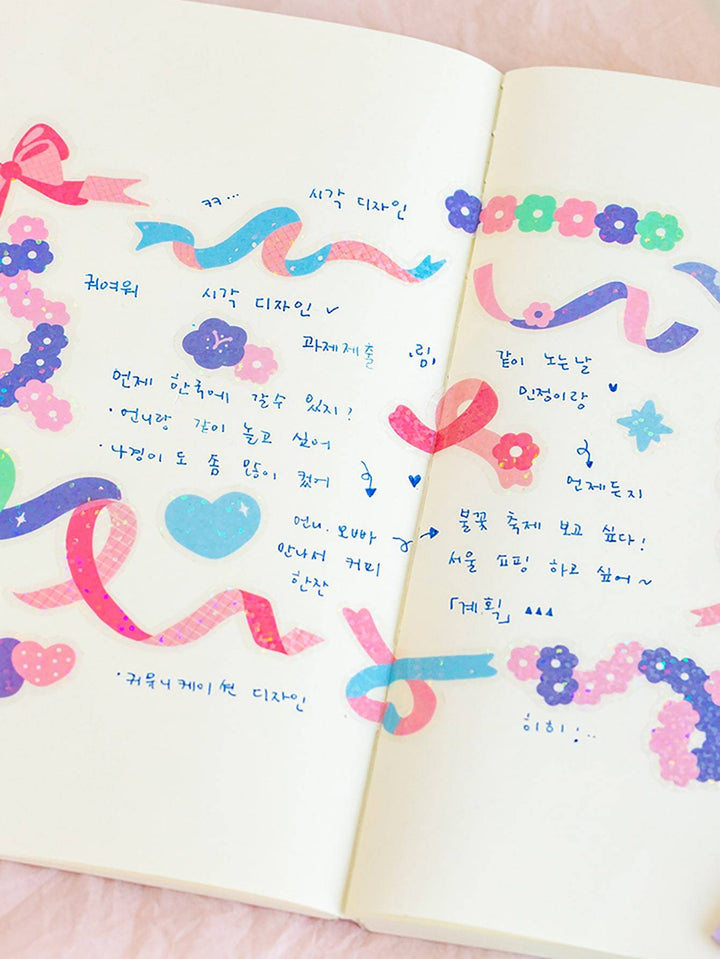 ㅋㅋ...
시각 디자인
귀여워
시각 디자인 ✓
과제제출
언제 한국에 갈수 있지?
·언니랑 같이 놀고 싶어
·나경이도 좀 많이 컸어
언니. 오빠
만나서 커피
한잔
·커뮤니케이션 디자인
같이 노는날
민정이랑
언제든지
불꽃 축제 보고 싶다!
서울 쇼핑 하고 싶어~
「계획」 ▲▲▲
히히!..